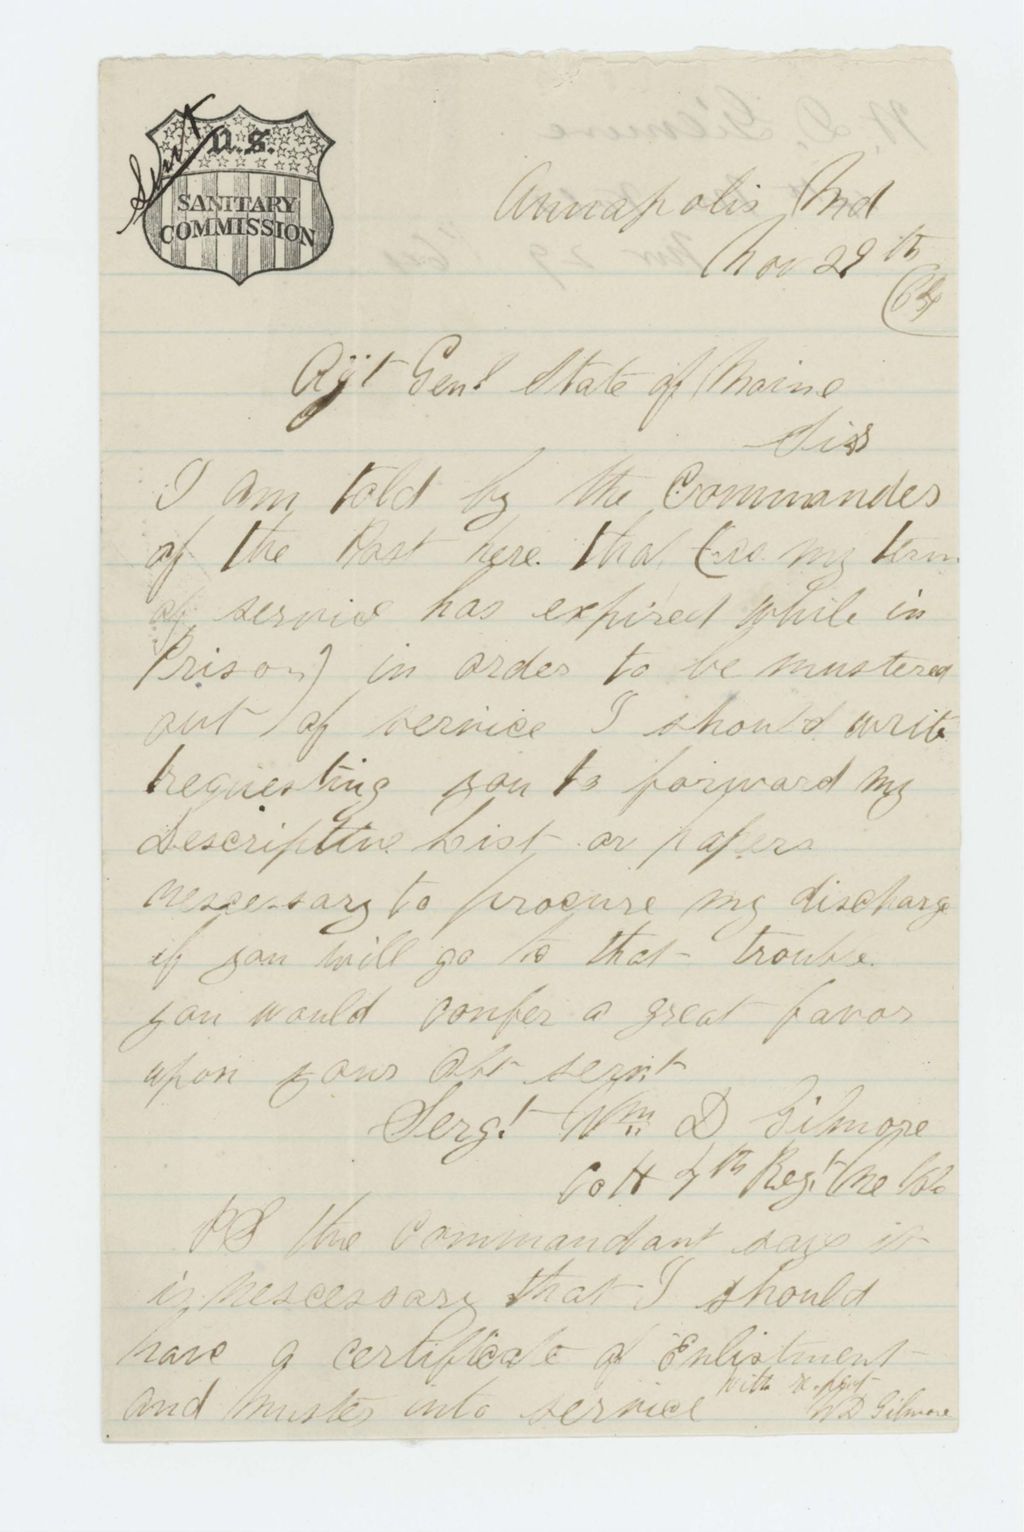 Sent
U.S.
SANITARY
COMMISSION
Annapolis Md
Nov 29th
64
Ajt Genl State of Maine
Sir
I am told by the Commander
of the Post here that (as my term
of service has expired while in
Prison) in order to be mustered
out of service I should write
requesting you to forward my
Descriptive List or papers
nescessary to procure my discharge
if you will go to that trouble
you would confer a great favor
upon your Obt servt
Sergt Wm D Gilmore
Co H 7th Regt Me Vols
PS the commandant says it
is nescessary that I should
have a certificate of Enlistment
and muster into service with respect
W D Gilmore